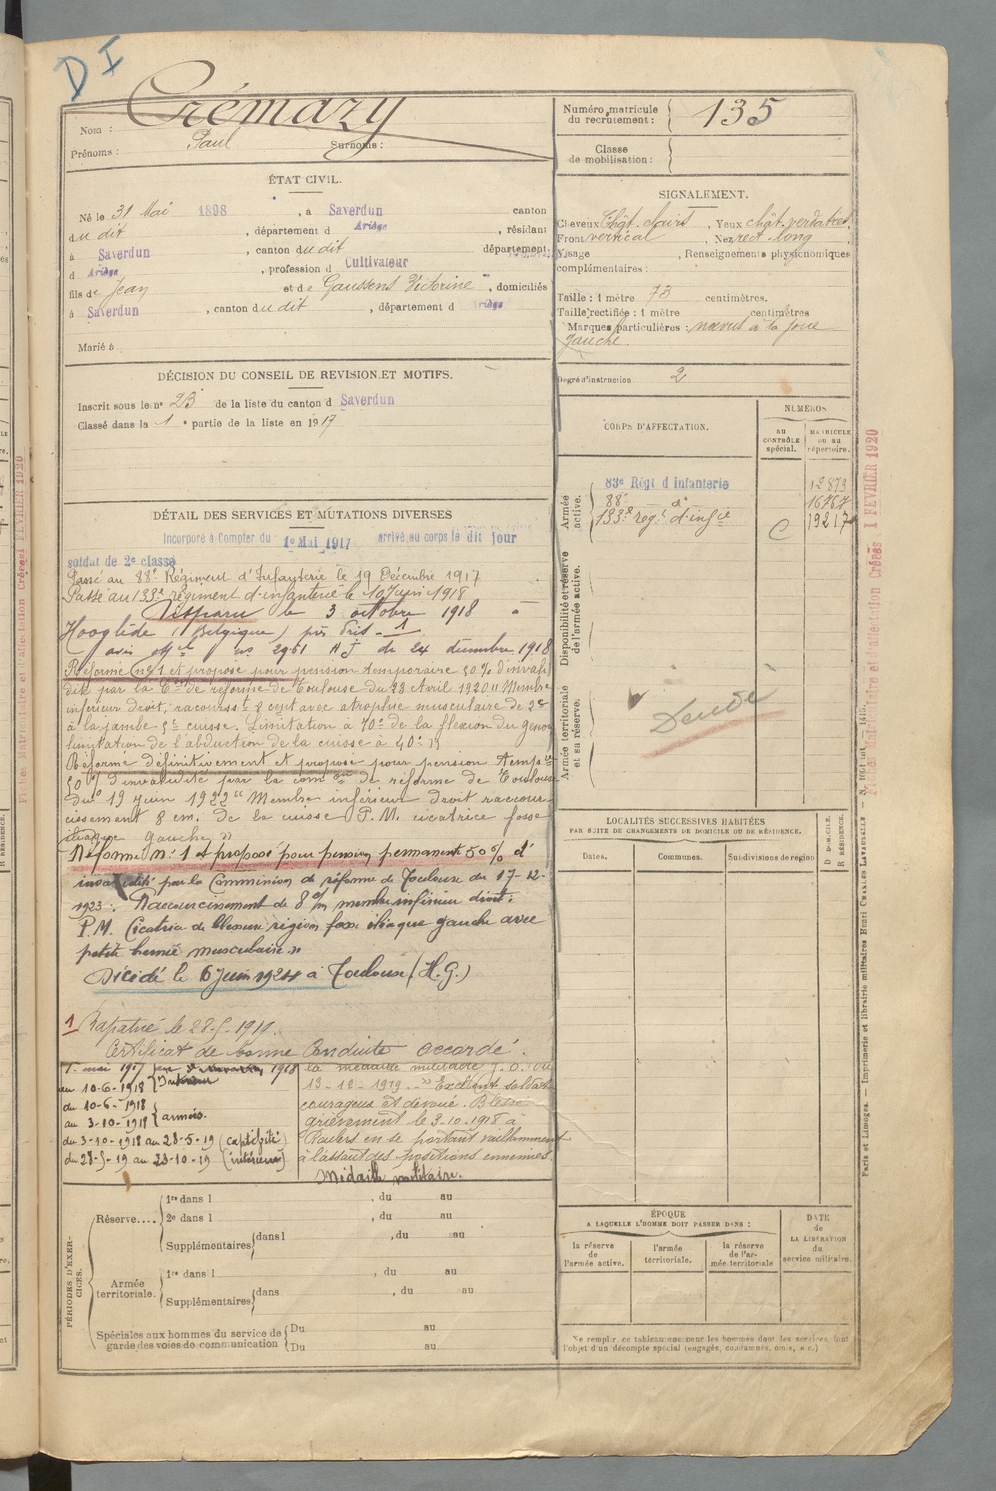 D I
Nom : Crémazy
Prénoms : Paul Surnoms :
Numéro matricule
du recrutement : 135
Classe
de mobilisation :
ÉTAT CIVIL.
Né le 31 Mai 1898, à Saverdun canton
du dit, département d Ariège, résidant
à Saverdun, canton du dit département
d Ariège, profession d Cultivateur
fils de Jean et de Gaussens Victorine, domiciliés
à Saverdun, canton du dit, département d Ariège
Marié à
SIGNALEMENT.
Cheveux Chât. clairs, Yeux chât. verdatres
Front vertical, Nez rect. long,
Visage, Renseignements physionomiques
complémentaires :
Taille : 1 mètre 73 centimètres.
Taille rectifiée : 1 mètre centimètres
Marques particulières : nævus à la joue
gauche.
Degré d'instruction 2
DÉCISION DU CONSEIL DE REVISION ET MOTIFS.
Inscrit sous le n° 23 de la liste du canton d Saverdun
Classé dans la 1e partie de la liste en 1917
CORPS D'AFFECTATION.
NUMÉROS
au
CONTRÔLE
spécial.
MATRICULE
ou au
répertoire.
Armée
active.
83e Régt d'Infanterie 12873
88e do 16767
133e regt d'infie C 19217
Disponibilité et réserve
de l'armée active.
Armée territoriale
et sa réserve.
DÉTAIL DES SERVICES ET MUTATIONS DIVERSES
Incorporé à Compter du 1er Mai 1917 arrivé au corps le dit jour
soldat de 2e classe
Passé au 88e Régiment d'Infanterie le 19 Décembre 1917
Passé au 133e régiment d'infanterie le 10 Juin 1918
Disparu le 3 octobre 1918
Hooglède (Belgique) pris 1
avis n° 2951 du 24 décembre 1918
Réformé n° 1 et proposé pour pension temporaire 50% d'invali
dité par la Con de réforme de Toulouse du 23 Avril 1920 "Membre
inférieur droit, raccourst 8 cent avec atrophie musculaire de 2c
à la jambe - 5c cuisse. Limitation à 70° de la flexion du genou
limitation de l'abduction de la cuisse à 40° "
Réformé définitivement et proposé pour pension tempre
50% d'invalidité par la comon de réforme de Toulouse
du 19 juin 1922 "Membre inférieur droit raccour-
cissement 8 cm. de la cuisse P.M. cicatrice fosse
iliaque gauche"
Réformé n° 1 et proposé pour pension permanente 50% d'
invalidité par la Commission de réforme de Toulouse du 17-12-
1923 : Raccourcissement de 8 c/m membre inférieur droit.
P.M. Cicatrice de blessure région fosse iliaque gauche avec
petite hernie musculaire"
Décédé le 6 Juin 1924 à Toulouse (H.G.)
1 Rapatrié le 28-5-1919.
Certificat de bonne Conduite accordé.
1er mai 1917
au 10-6-1918 } Intérieur
du 10-6-1918
au 3-10-1918 } armées.
du 3-10-1918 au 28-5-19 (captivité)
du 28-5-19 au 23-10-19 (intérieur)
la médaille militaire J.O. du
13-12-1919 "Excellent soldat
courageux et dévoué. Blessé
grièvement le 3-10-1918 à
Roulers en se portant vaillamment
à l'assaut des positions ennemies.
Médaille militaire.
LOCALITÉS SUCCESSIVES HABITÉES
PAR SUITE DE CHANGEMENTS DE DOMICILE OU DE RÉSIDENCE.
Dates.
Communes.
Subdivisions de region
D DOMICILE.
R RÉSIDENCE.
PÉRIODES D'EXER-
CICES.
Réserve....
1re dans l, du au
2e dans l, du au
Supplémentaires dans l, du au
Armée
territoriale.
1re dans l, du au
Supplémentaires dans, du au
Spéciales aux hommes du service de
garde des voies de communication
Du au
Du au
ÉPOQUE
A LAQUELLE L'HOMME DOIT PASSER DANS :
la réserve
de l'armée active.
l'armée
territoriale.
la réserve
de l'ar-
mée territoriale
DATE
de
LA LIBÉRATION
du
service militaire.
Ne remplir ce tableau que pour les hommes dont les services font
l'objet d'un décompte spécial (engagés, condamnés, omis, etc.)
Fiches Matriculaire et d'affectation Créées 1 FEVRIER 1920
Paris et Limoges. — Imprimerie et librairie militaires Henri CHARLES-LAVAUZELLE